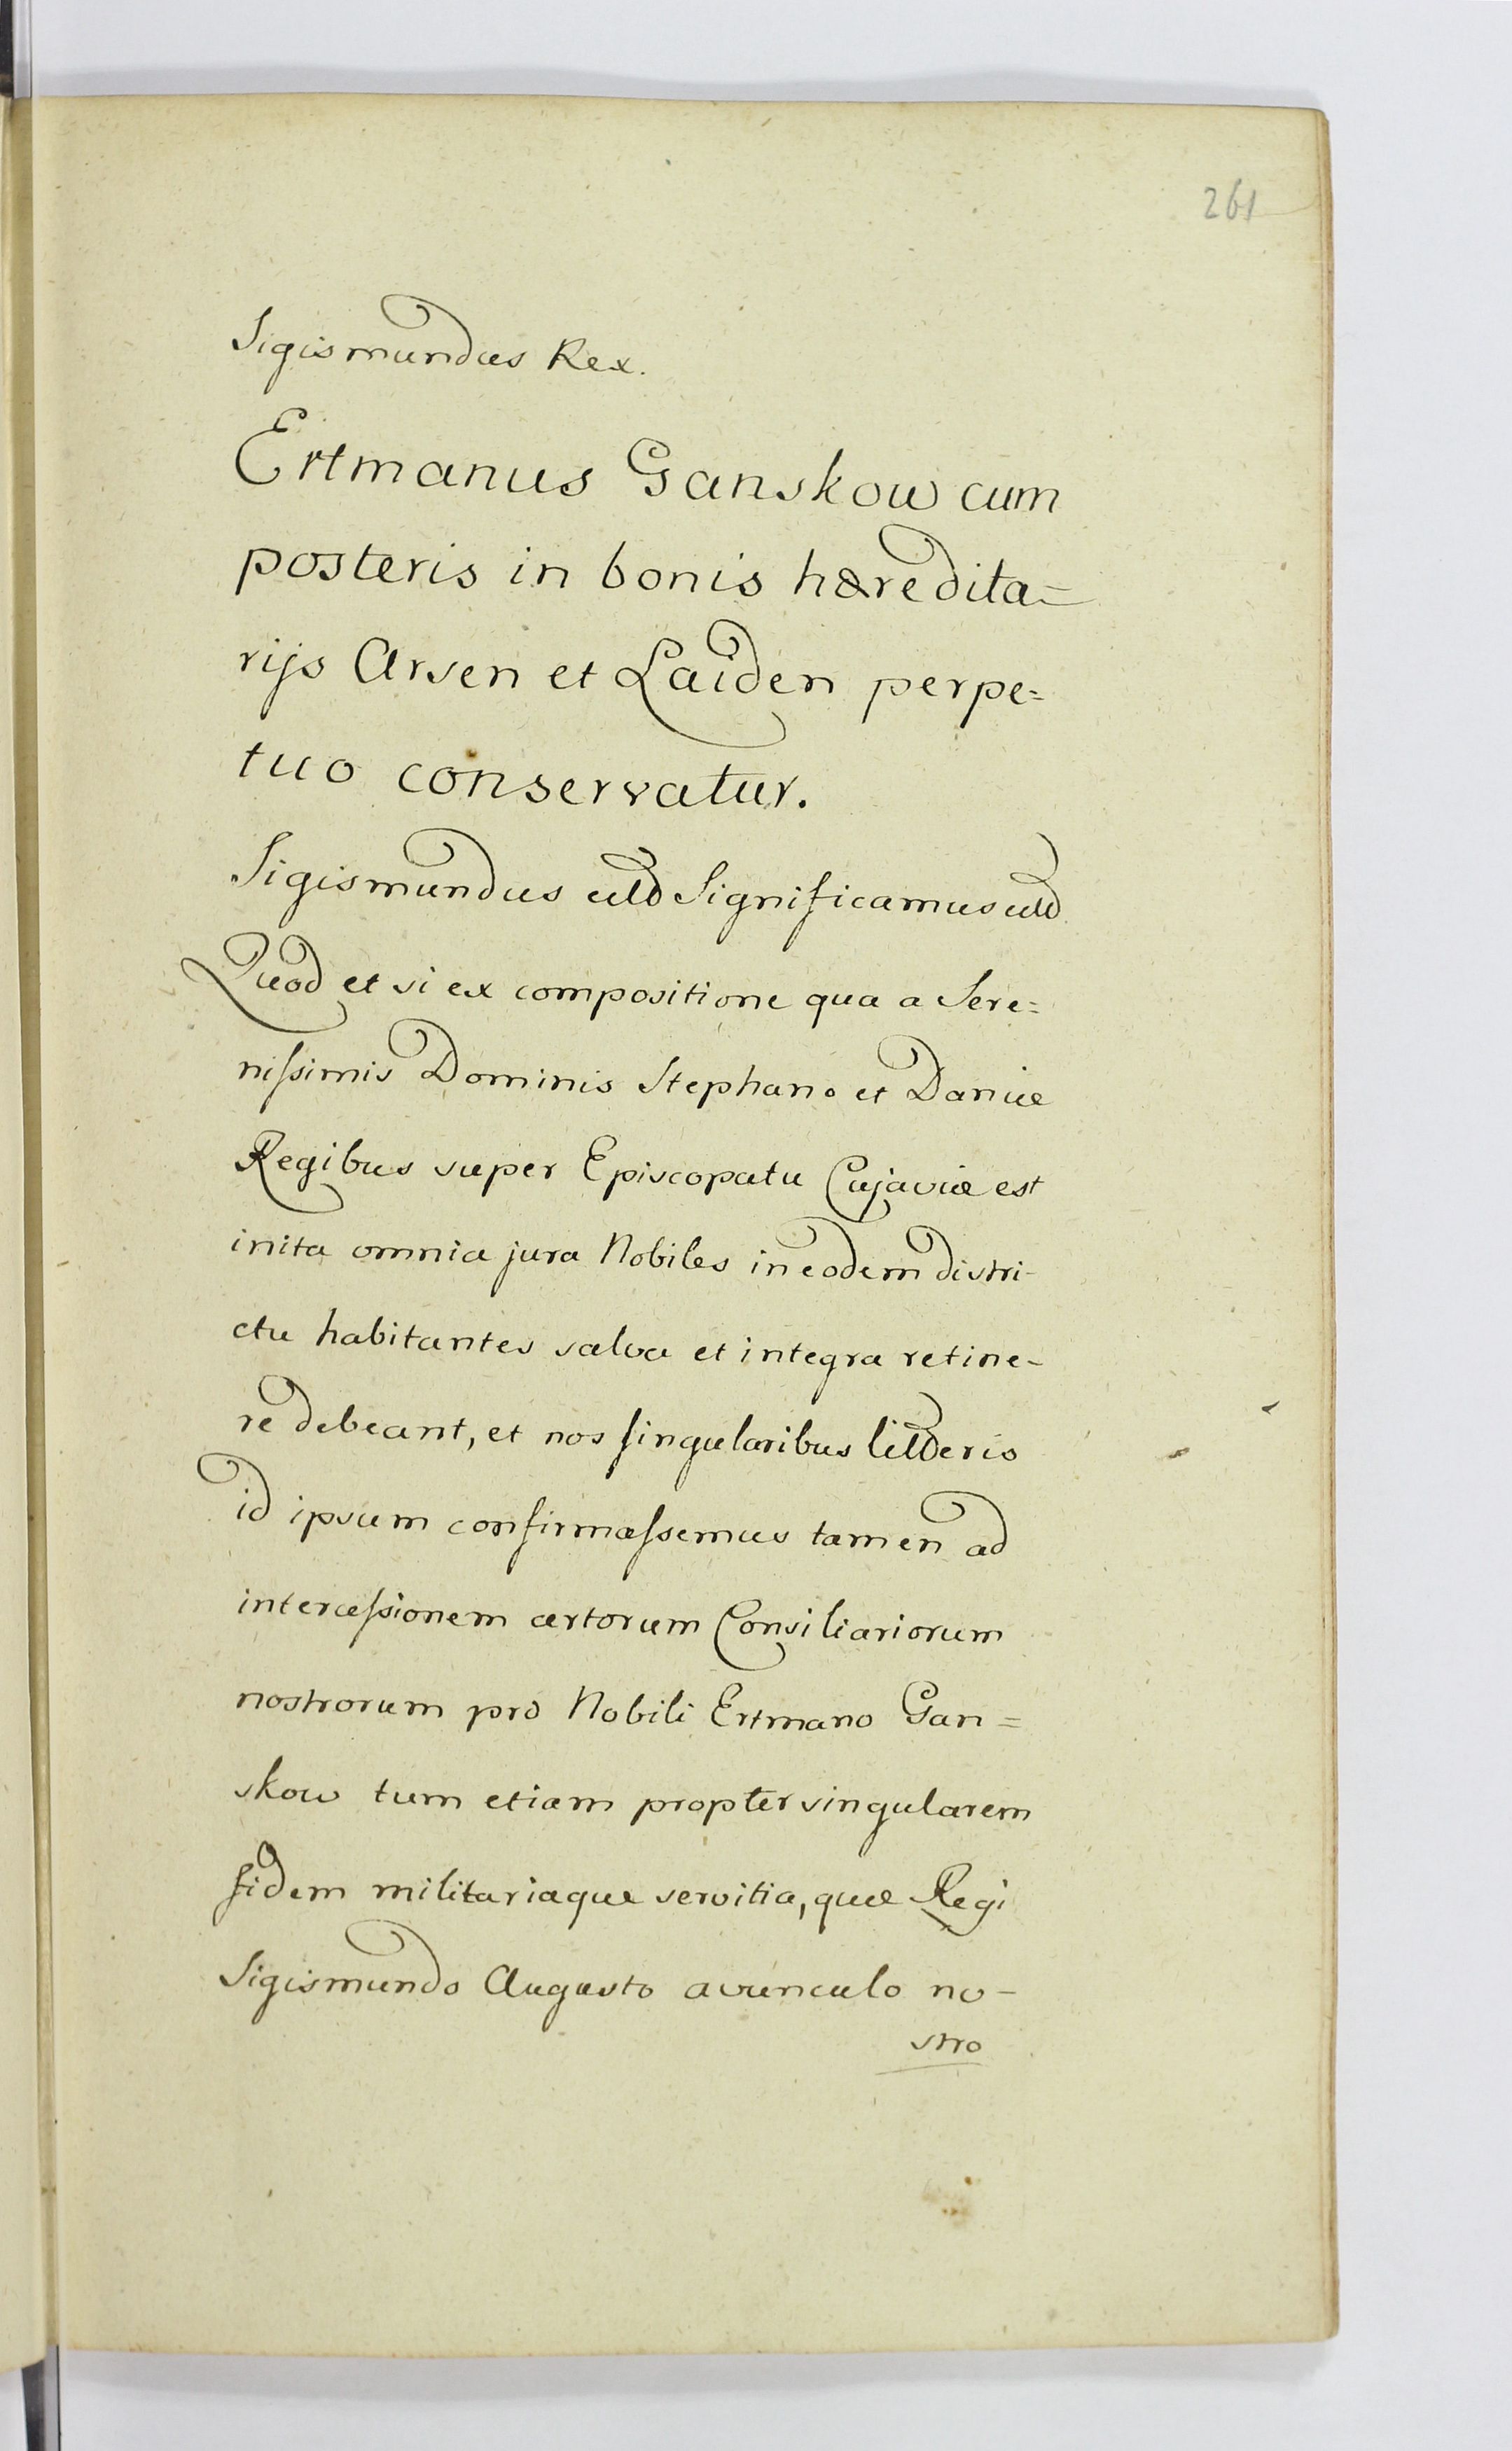 261
Sigismundus Rex.
Ertmanus Ganskow cum
posteris in bonis hæredita=
rijs Arsen et Laiden perpe=
tuo conservatur.
Sigismundus Significamus
Quod et si ex compositione qua a Sere=
nissimis Dominis Stephano et Daniæ
Regibus super Episcopatu Cujaviæ est
inita omnia jura Nobiles in eodem distri-
ctu habitantes salva et integra retine-
re debeant, et nos singularibus litteris
id ipsum confirmassemus tamen ad
intercessionem certorum Consiliariorum
nostrorum pro Nobili Ertmano Gan=
skow tum etiam propter singularem
fidem militariaque servitia, quæ Regi
Sigismundo Augusto avunculo no-
stro